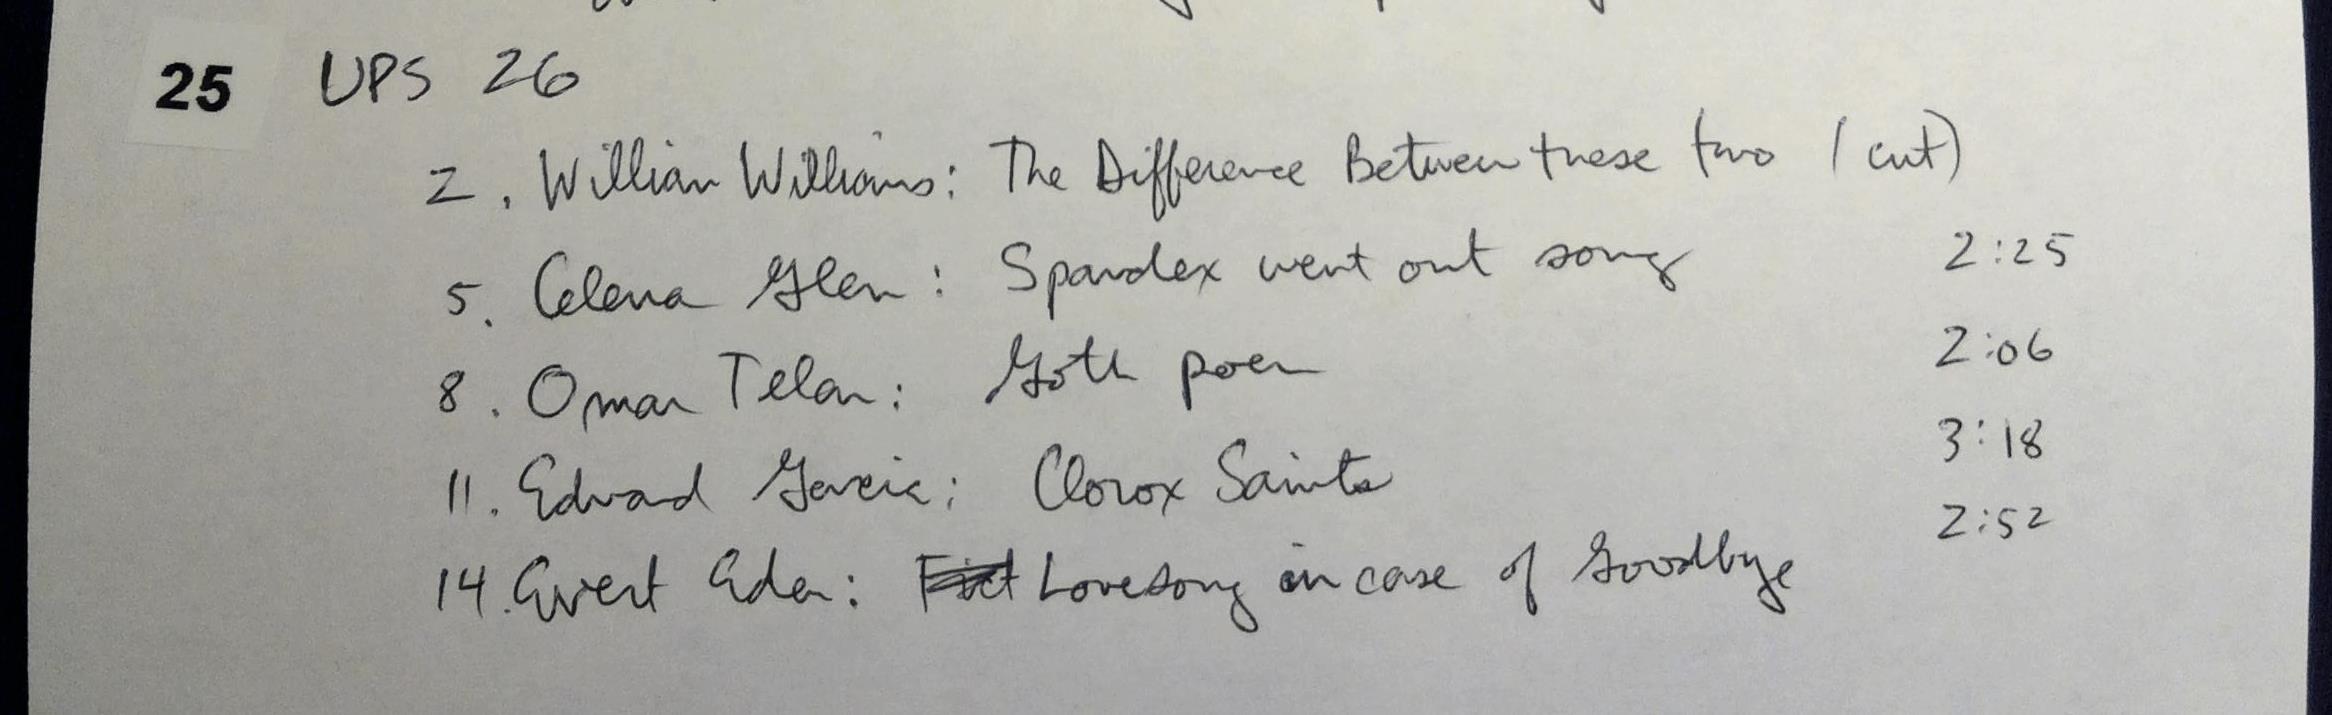 25 UPS 26
2. William Williams: The Difference Between these two (cut)
5. Celena Glen: Spandex went out song 2:25
8. Omar Telan: Goth poem 2:06
11. Edward Garcia: Clorox Saints 3:18
14. Evert Eden: Lovesong in case of Goodbye 2:52